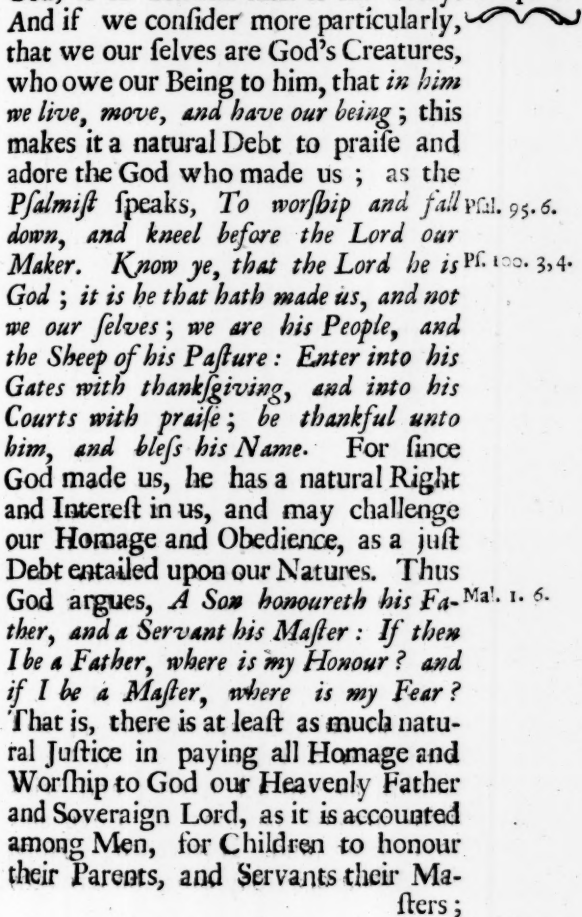 And if we conſider more particularly,
that we our ſelves are God's Creatures,
who owe our Being to him, that in him
we live, move, and have our being; this
makes it a natural Debt to praiſe and
adore the God who made us; as the
Pſalmiſt ſpeaks, To worſhip and fall
Pſal. 95. 6.
down, and kneel before the Lord our
Maker. Know ye, that the Lord he is
Pſ. 100. 3, 4.
God; it is he that hath made us, and not
we our ſelves; we are his People, and
the Sheep of his Paſture: Enter into his
Gates with thankſgiving, and into his
Courts with praiſe; be thankful unto
him, and bleſs his Name. For ſince
God made us, he has a natural Right
and Intereſt in us, and may challenge
our Homage and Obedience, as a juſt
Debt entailed upon our Natures. Thus
God argues, A Son honoureth his Fa-
Mal. 1. 6.
ther, and a Servant his Maſter: If then
I be a Father, where is my Honour? and
if I be a Maſter, where is my Fear?
That is, there is at leaſt as much natu-
ral Juſtice in paying all Homage and
Worſhip to God our Heavenly Father
and Soveraign Lord, as it is accounted
among Men, for Children to honour
their Parents, and Servants their Ma-
ſters;